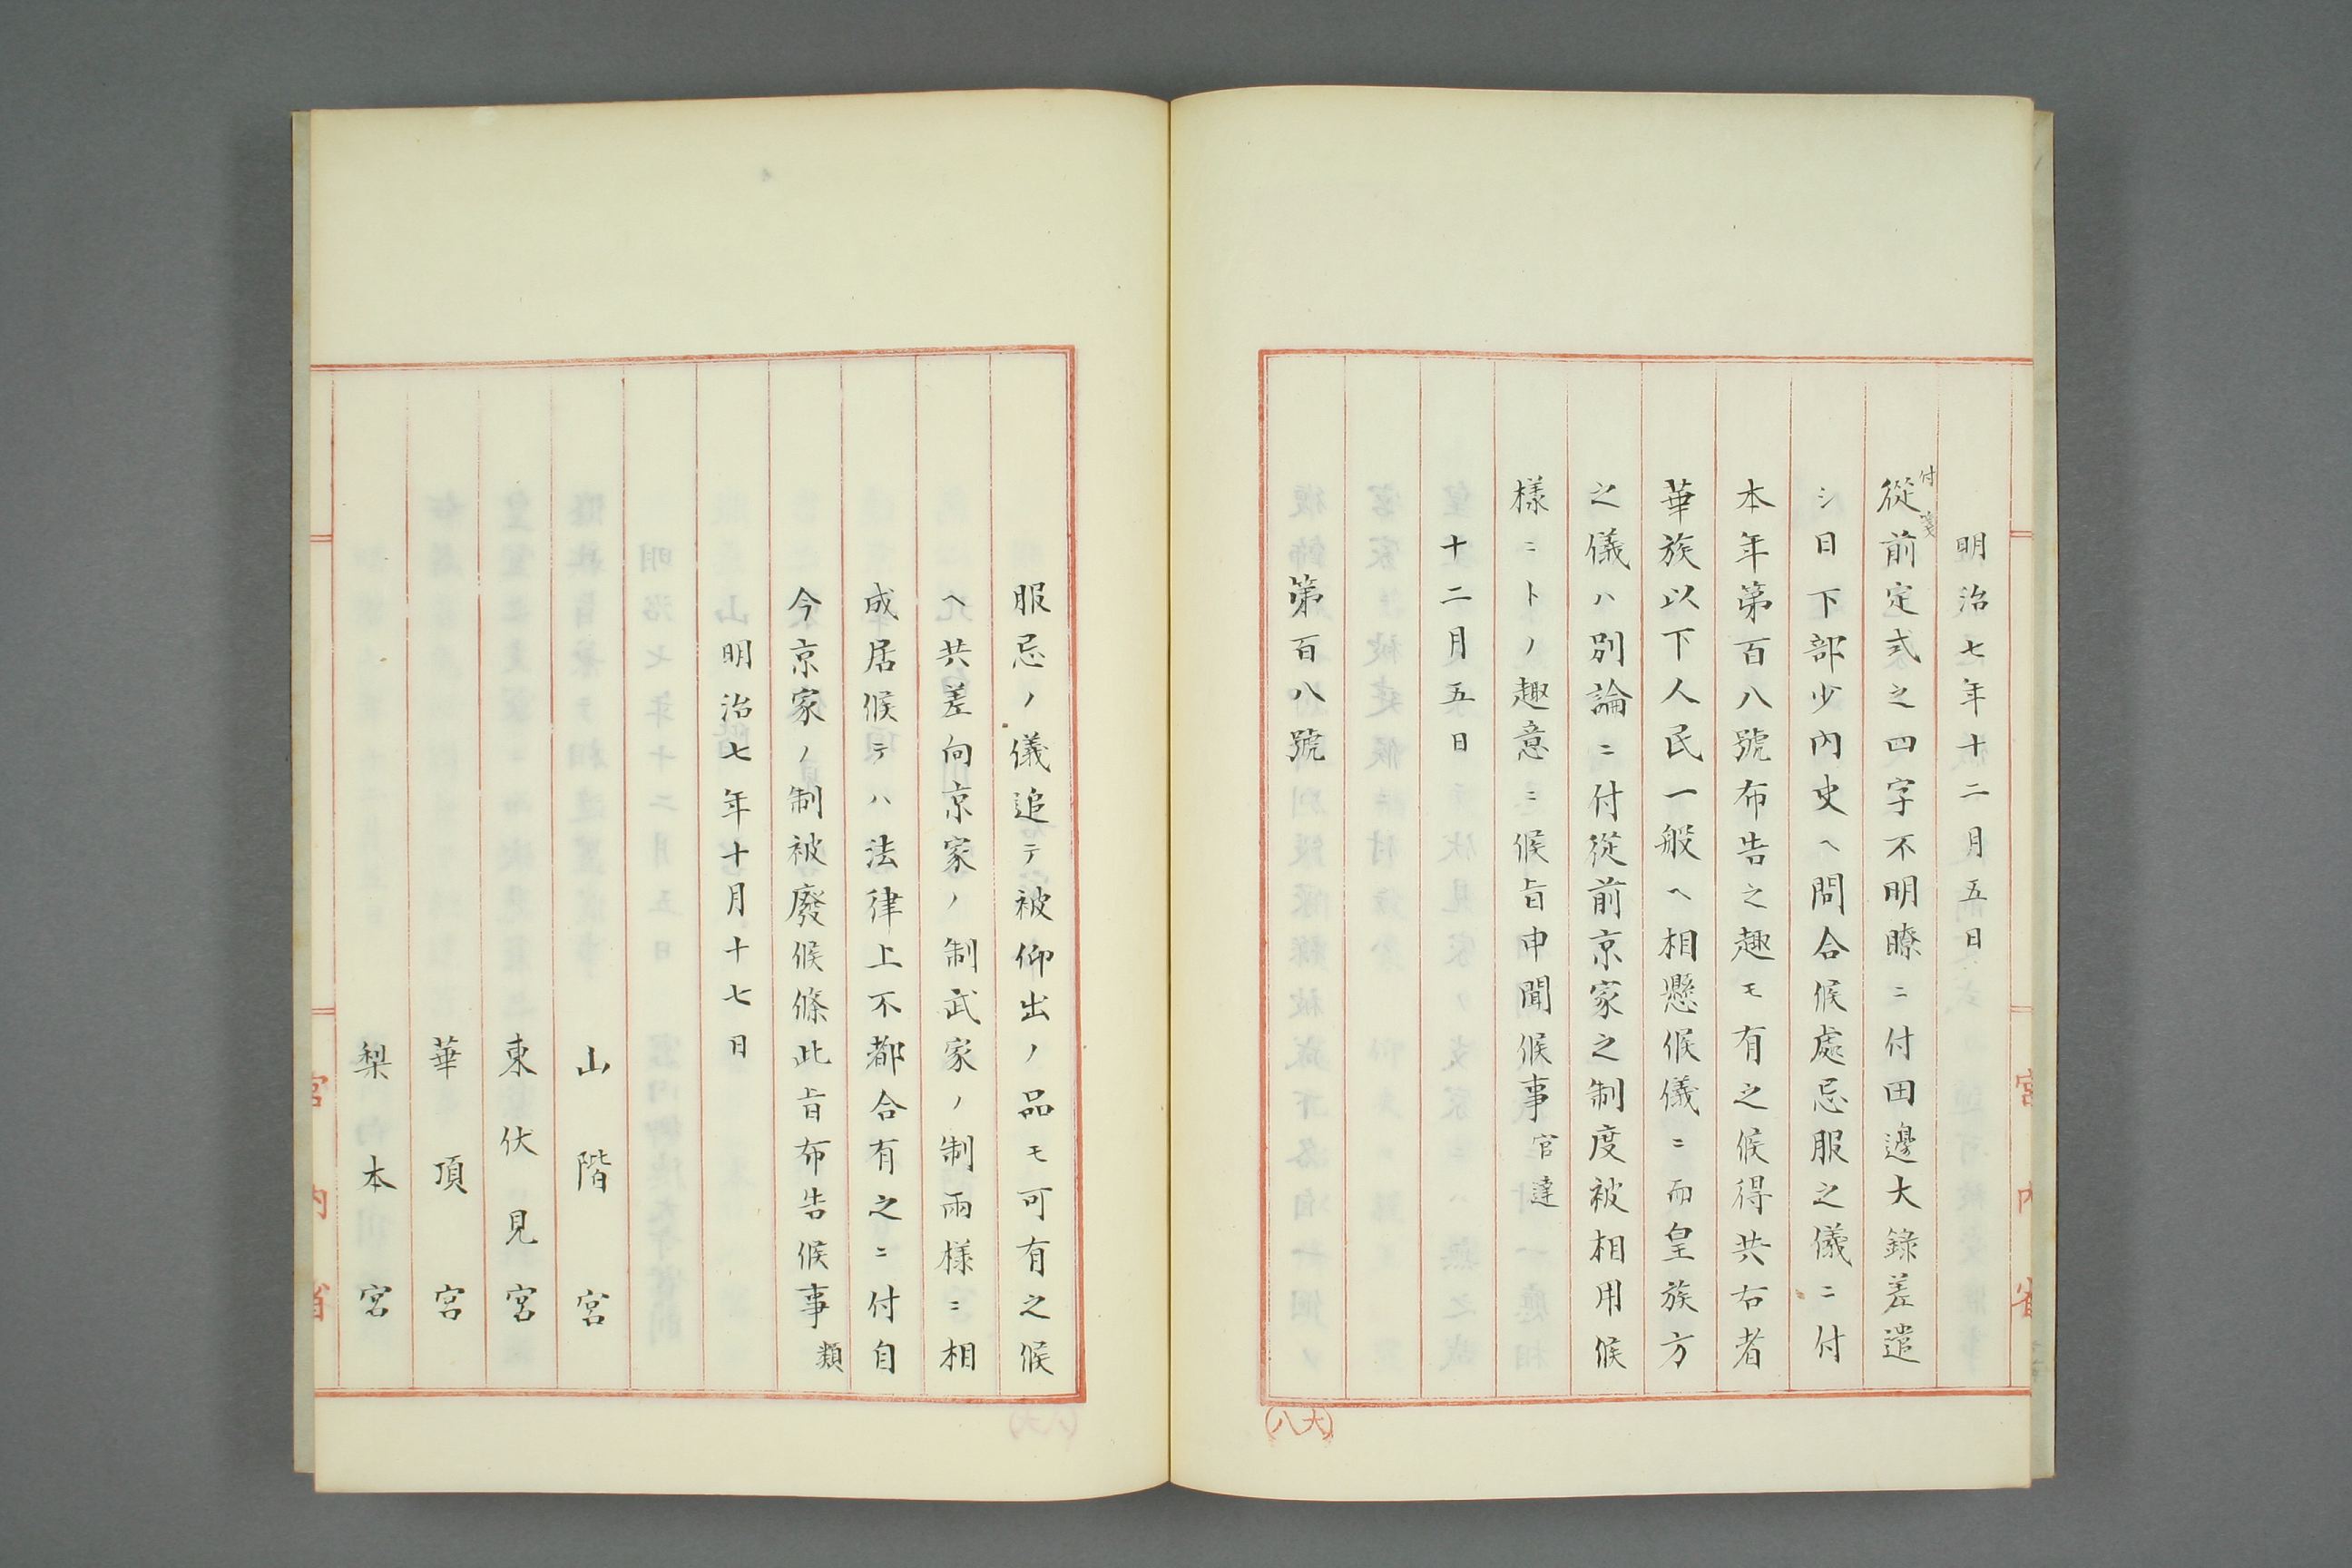 明治七年十二月五日
付箋
從前定式之四字不明瞭ニ付田邊大錄差遣
シ日下部少内史ヘ問合候處忌服之儀ニ付
本年第百八號布告之趣モ有之候得共右者
華族以下人民一般ヘ相懸候儀ニ而皇族方
之儀ハ別論ニ付從前京家之制度被相用候
樣ニトノ趣意ニ候旨申聞候事 官達
十二月五日
第百八號
宮内省
(大八)
服忌ノ儀追テ被仰出ノ品モ可有之候
ヘ共差向京家ノ制武家ノ制兩樣ニ相
成居候テハ法律上不都合有之ニ付自
今京家ノ制被廢候條此旨布告候事 類
明治七年十月十七日
山階宮
東伏見宮
華頂宮
梨本宮
宮内省